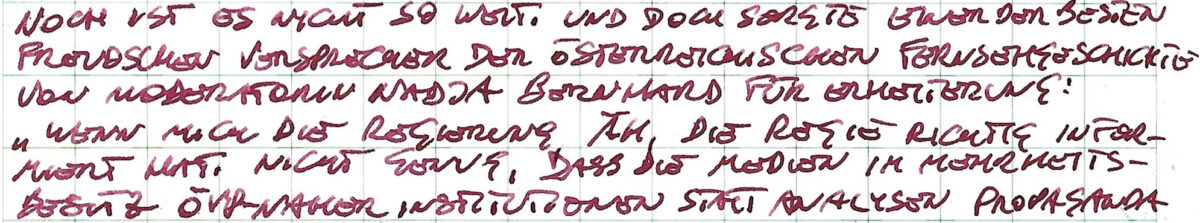 NOCH IST ES NICHT SO WEIT. UND DOCH SORGTE EINER DER BESTEN
FREUDSCHEN VERSPRECHER DER ÖSTERREICHISCHEN FERNSEHGESCHICHTE
VON MODERATORIN NADJA BERNHARD FÜR ERHEITERUNG:
„WENN MICH DIE REGIERUNG, ÄH, DIE REGIE RICHTIG INFOR-
MIERT HAT. NICHT GENUG, DASS DIE MEDIEN IM MEHRHEITS-
BESITZ ÖVP-NAHER INSTITUTIONEN STATT ANALYSEN PROPAGANDA